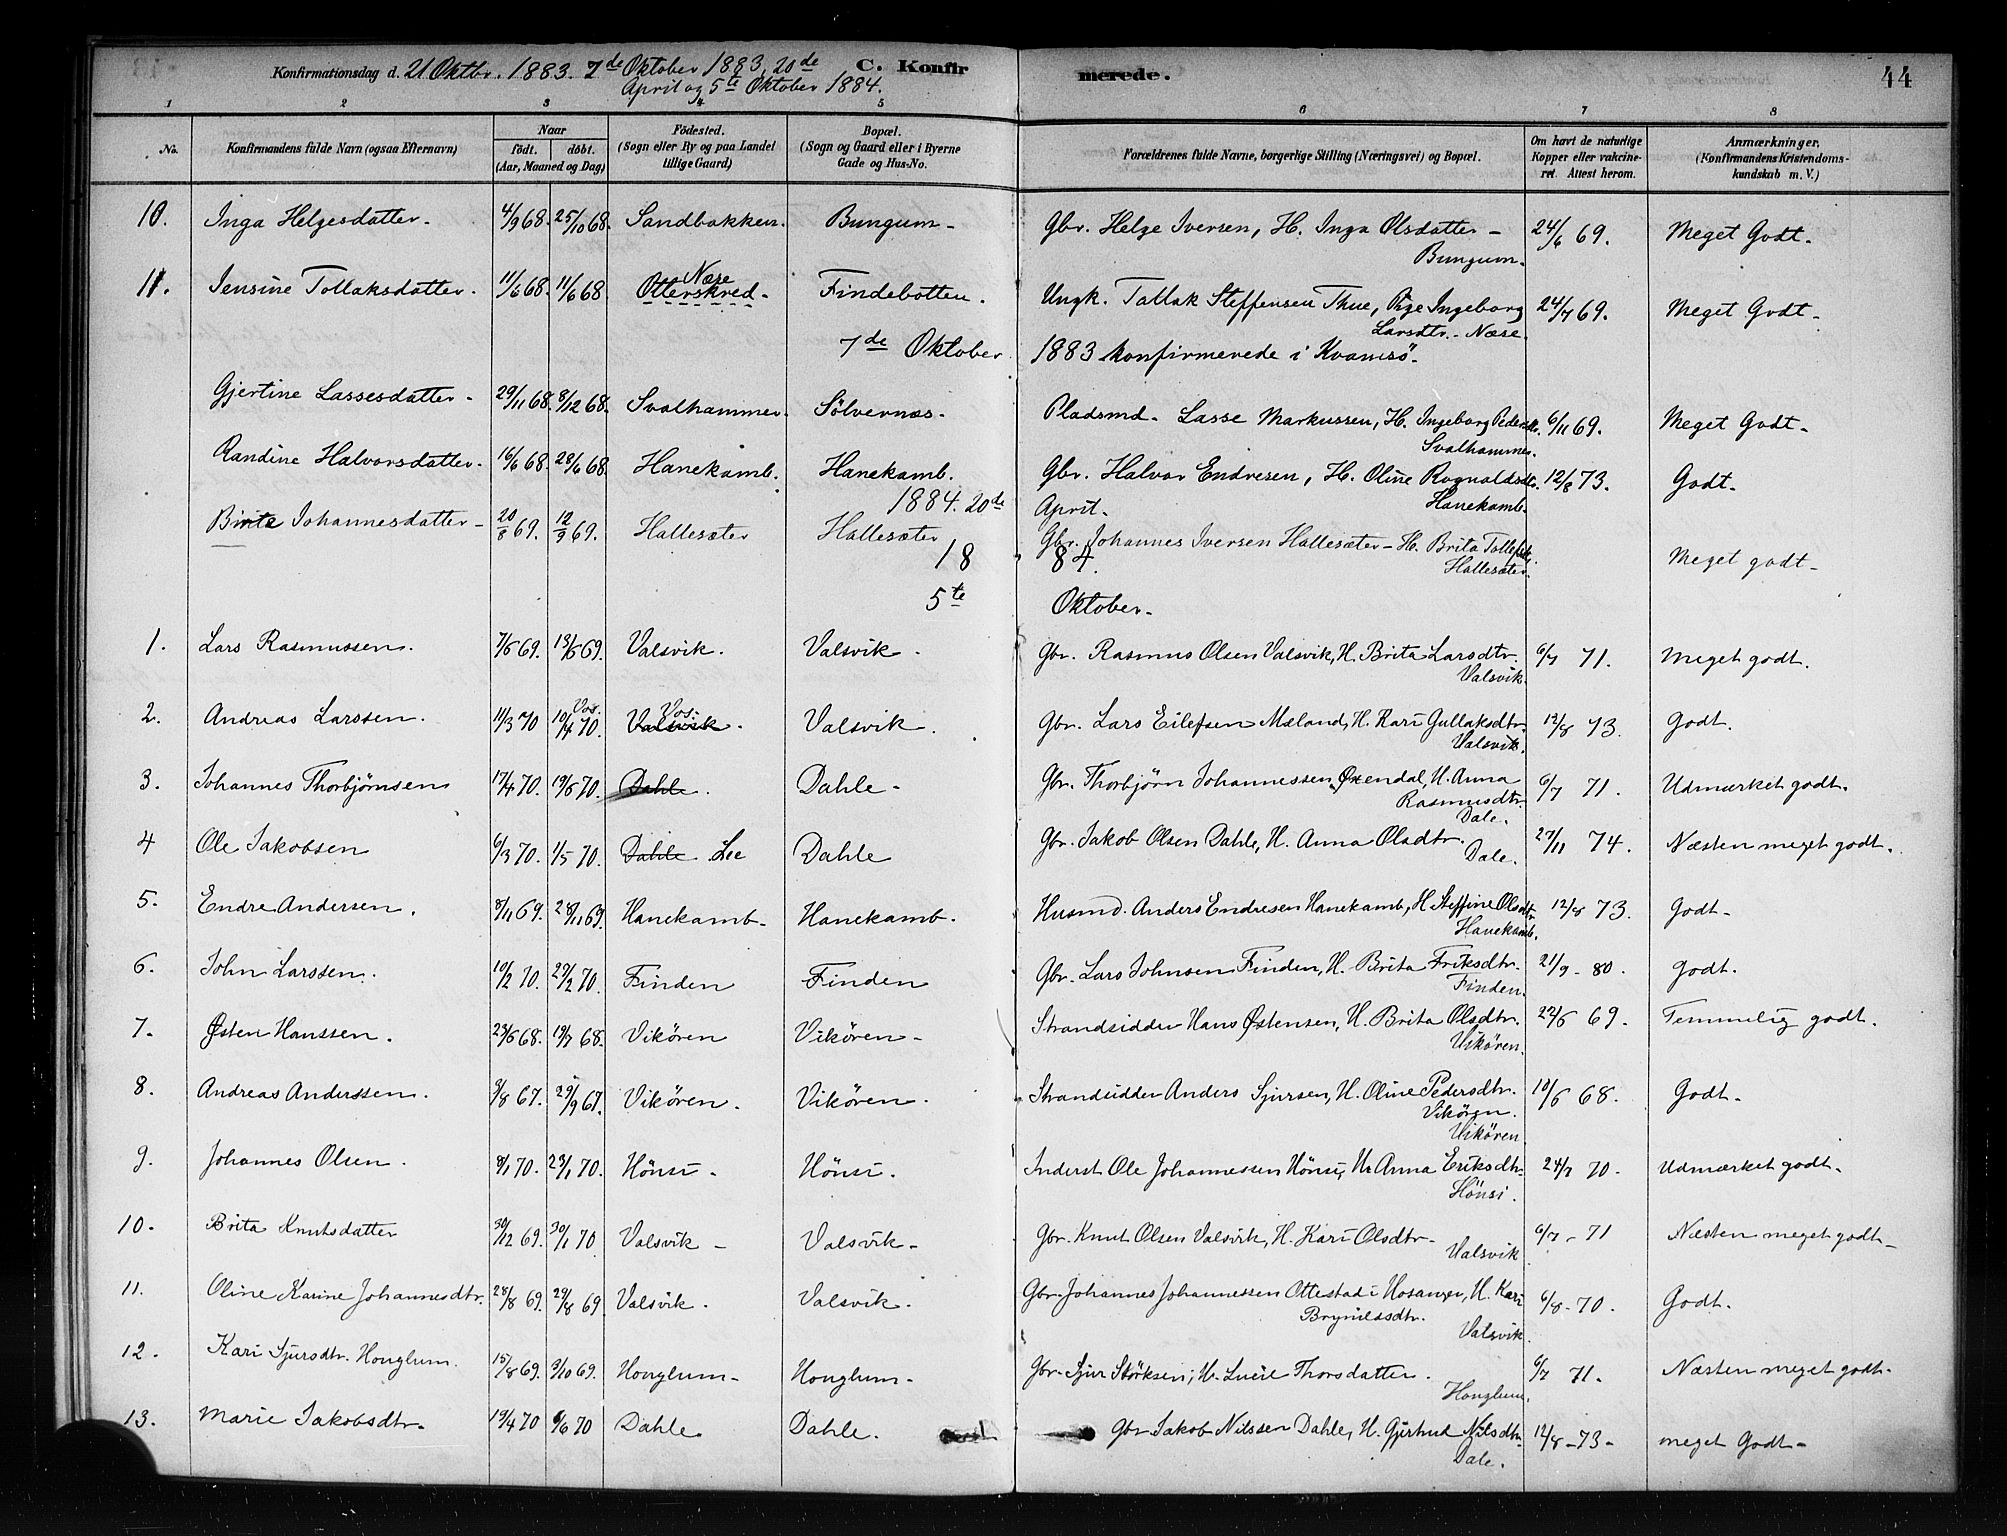 Konfirmationsdag d. 21 Oktbr. 1883. 7de Oktober 1883, 20de C. Konfirmerede. 44
April og 5te Oktober 1884.
1 2 3 4 5 6 7 8
No. Konfirmandens fulde Navn (ogsaa Efternavn) Naar født. døbt. (Aar, Maaned og Dag) Födested. (Sogn eller By og paa Landet tillige Gaard) Bopæl. (Sogn og Gaard eller i Byerne Gade og Hus-No. Forældrenes fulde Navne, borgerlige Stilling (Næringsvei) og Bopæl. Om havt de naturlige Kopper eller vakcineret. Attest herom. Anmærkninger, (Konfirmandens Kristendomskundskab m. V.)
10. Inga Helgesdatter. 4/9 68. 25/10 68. Sandbakken. Bungum - Gbr. Helge Iversen, H. Inga Olsdatter - Bungum. 24/6 69. Meget Godt.
11. Jensine Tollaksdatter. 11/6 68. 11/6 68 Otterskred - Næse Findebotten. Ungk. Tollak Steffensen Thue, Pige Ingeborg Larsdtr. - Næse. 24/7 69. Meget Godt -
7de Oktober 1883 konfirmerede i Kvamsö.
Gjertine Lassesdatter - 29/11 68. 8/12 68. Svalhammer. Sölvernæs. Pladsmd. Lasse Markussen, H. Ingeborg Pedersdtr. Svalhammer. 6/11 69. Meget Godt -
Randine Halvorsdatter. 16/6 68. 28/6 68. Hanekamb. Hanekamb. Gbr. Halvor Endresen, H. Oline Rognaldsdtr. Hanekamb. 12/8 73. Godt.
1884. 20de April.
Brita Johannesdatter - 20/8 69. 12/9 69. Hallesæter Hallesæter Gbr. Johannes Iversen Hallesæter - H. Brita Tollefsdtr. Hallesæter. Meget godt -
1884.
5te Oktober.
1. Lars Rasmussen. 7/6 69. 13/6 69. Valsvik. Valsvik. Gbr. Rasmus Olsen Valsvik, H. Brita Larsdtr. Valsvik. 6/7 71. Meget godt.
2. Andreas Larssen. 11/3 70 10/4 70. Vos. Valsvik. Vos. Valsvik. Gbr. Lars Eilefsen Mæland, H. Kari Gullaksdtr. Valsvik. 12/8 73. Godt.
3. Johannes Thorbjørnsen 17/4 70. 19/6 70. Dahle. Dahle - Gbr. Thorbjørn Johannessen Øxendal, H. Anna Rasmusdtr. Dale. 6/7 71. Udmærket godt.
4 Ole Jakobsen 6/3 70. 1/5 70. Dahle Lee Dahle Gbr. Jakob Olsen Dahle, H. Anna Olsdtr. Dale. 27/11 74. Næsten meget godt.
5. Endre Andersen. 8/11 69. 28/11 69. Hanekamb. Hanekamb. Husmd. Anders Endresen Hanekamb, H. Steffine Olsdtr. Hanekamb. 12/8 73. Godt.
6. John Larssen. 10/2 70. 27/2 70. Finden Finden Gbr. Lars Johnsen Finden, H. Brita Eriksdtr. Finden. 21/9 - 80. Godt.
7. Østen Hanssen. 23/6 68. 19/7 68. Vikören Vikören - Strandsidder Hans Østensen, H. Brita Olsdtr. Vikören. 22/6 69. Temmelig godt.
8. Andreas Anderssen. 3/8 67. 29/9 67. Vikören. Vikören. Strandsidder Anders Sjursen, H. Oline Pedersdtr. Vikören. Vikören. 10/6 68. Godt.
9. Johannes Olsen. 8/1 70. 23/1 70. Hönsi. Hönsi. Inderst Ole Johannessen Hönsi, H. Anna Eriksdtr. Hönsi. 24/7 70. Udmærket godt.
10. Brita Knutsdatter 30/12 69. 30/1 70 Valsvik - Valsvik. Gbr. Knut Olsen Valsvik, H. Kari Olsdtr. Valsvik 6/7 - 71 Næsten meget godt -
11. Oline Karine Johannesdtr. 28/8 69. 29/8 69 Valsvik. Valsvik. Gbr. Johannes Johannessen Ottestad i Hosanger, H. Kari Brynildsdtr. Valsvik. 6/8 - 70. Godt.
12. Kari Sjursdtr. Honglum. 15/8 69. 3/10 69. Honglum - Honglum - Gbr. Sjur Störksen, H. Lucie Thorsdatter. Honglum. 6/7 71. Næsten meget godt.
13. Marie Jakobsdtr. 19/4 70 6/6 70 Dahle Dahle. Gbr Jakob Nilssen Dahle, H. Gjertrud Nilsdtr. Dale. 12/8 - 73 - meget Godt -